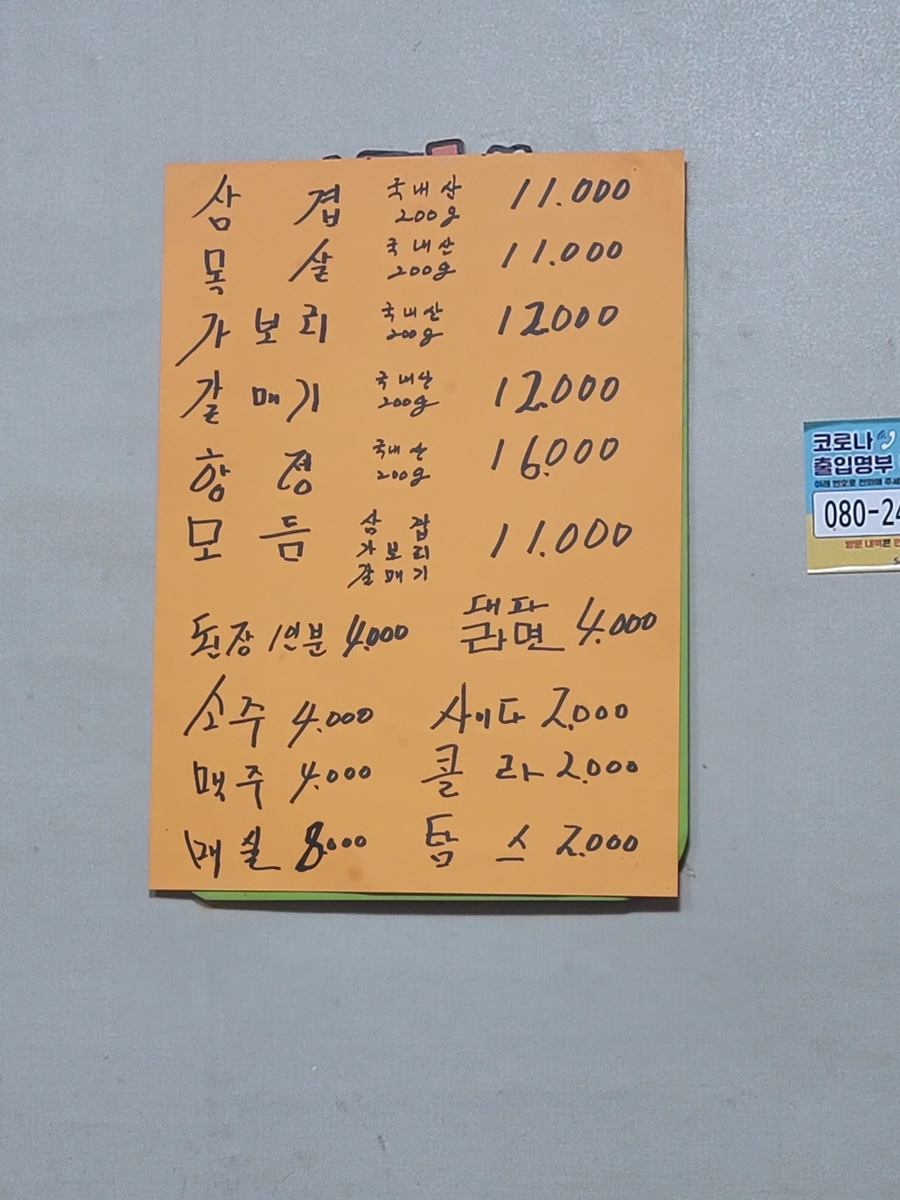 삼 겹 국내산 200g 11.000
목 살 국내산 200g 11.000
가 보 리 국내산 200g 12.000
갈 매 기 국내산 200g 12.000
항 정 국내산 200g 16.000
모 듬 삼 겹 11.000
가 보 리
갈 매 기
된장 1인분 4.000 대파 라면 4.000
소주 4.000 사이다 2.000
맥주 4.000 콜 라 2.000
매실 8.000 탐 스 2.000
코로나
출입명부
아래 번호로 전화해 주세
080-24
방문 내역은